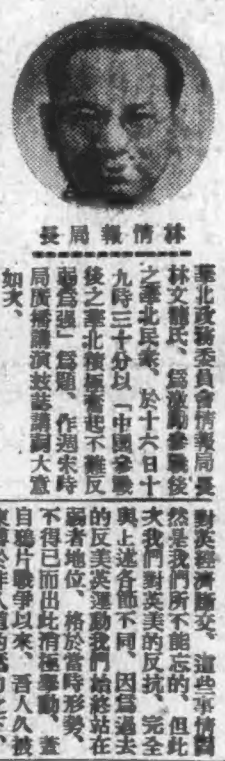 林情報局長
華北政務委員會情報局長
林文龍氏、為激勵參戰後
之華北民衆、於十六日十
九時三十分以「中國參戰
後之華北積極奮起不難反
弱為强」為題、作週末時
局廣播講演茲誌講詞大意
如次、
對英經濟斷交、這些事情
然是我們所不能忘的、但此
次我們對英美的反抗、完全
與上述各節不同、因為過去
的反美英運動我們始終站在
弱者地位、格於當時形勢、
不得已而出此消極舉動、蓋
自鴉片戰爭以來、吾人久被